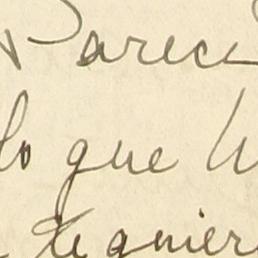 Parece
lo que
te quier